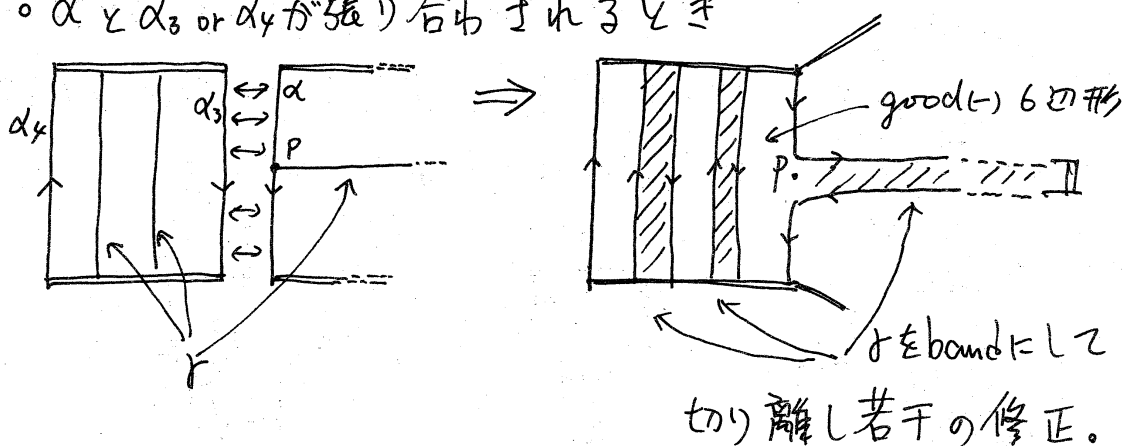 。α と α₃ or α₄ が張り合わされるとき
α₄
α₃
α
P
γ
⇒
good(-) 6辺形
P.
γをbandにして
切り離し若干の修正。